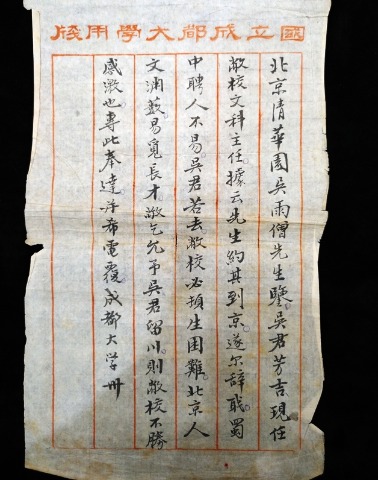 國立成都大學用牋
北京清華園吳雨僧先生鑒吳君芳吉現任
敝校文科主任據云先生約其到京遂尔辞職蜀
中聘人不易吳君若去敝校必頓生困難北京人
文渊薮易覓長才敢乞允予吳君留川則敝校不勝
感激也專此奉達并希電覆成都大学